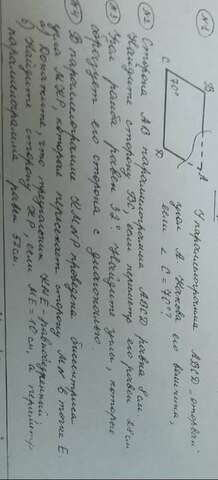 №1
B
C 70°
A
D
У параллелограмма ABCD „оторван“
угол A. Какова его величина,
если ∠C = 70°?
№2 Сторона AB параллелограмма ABCD равна 8см
Найдите сторону BC, если периметр его равен
№3 Угол ромба равен 32°. Найдите углы, которые
образует его сторона с диагональю.
№4 В параллелограмме KMNP проведена биссектриса
угла MKP, которая пересекает сторону MN в точке E.
а) Докажите, что треугольник KME - равнобедренный
б) Найдите сторону KP, если ME = 10см, а периметр
параллелограмма равен 52см.